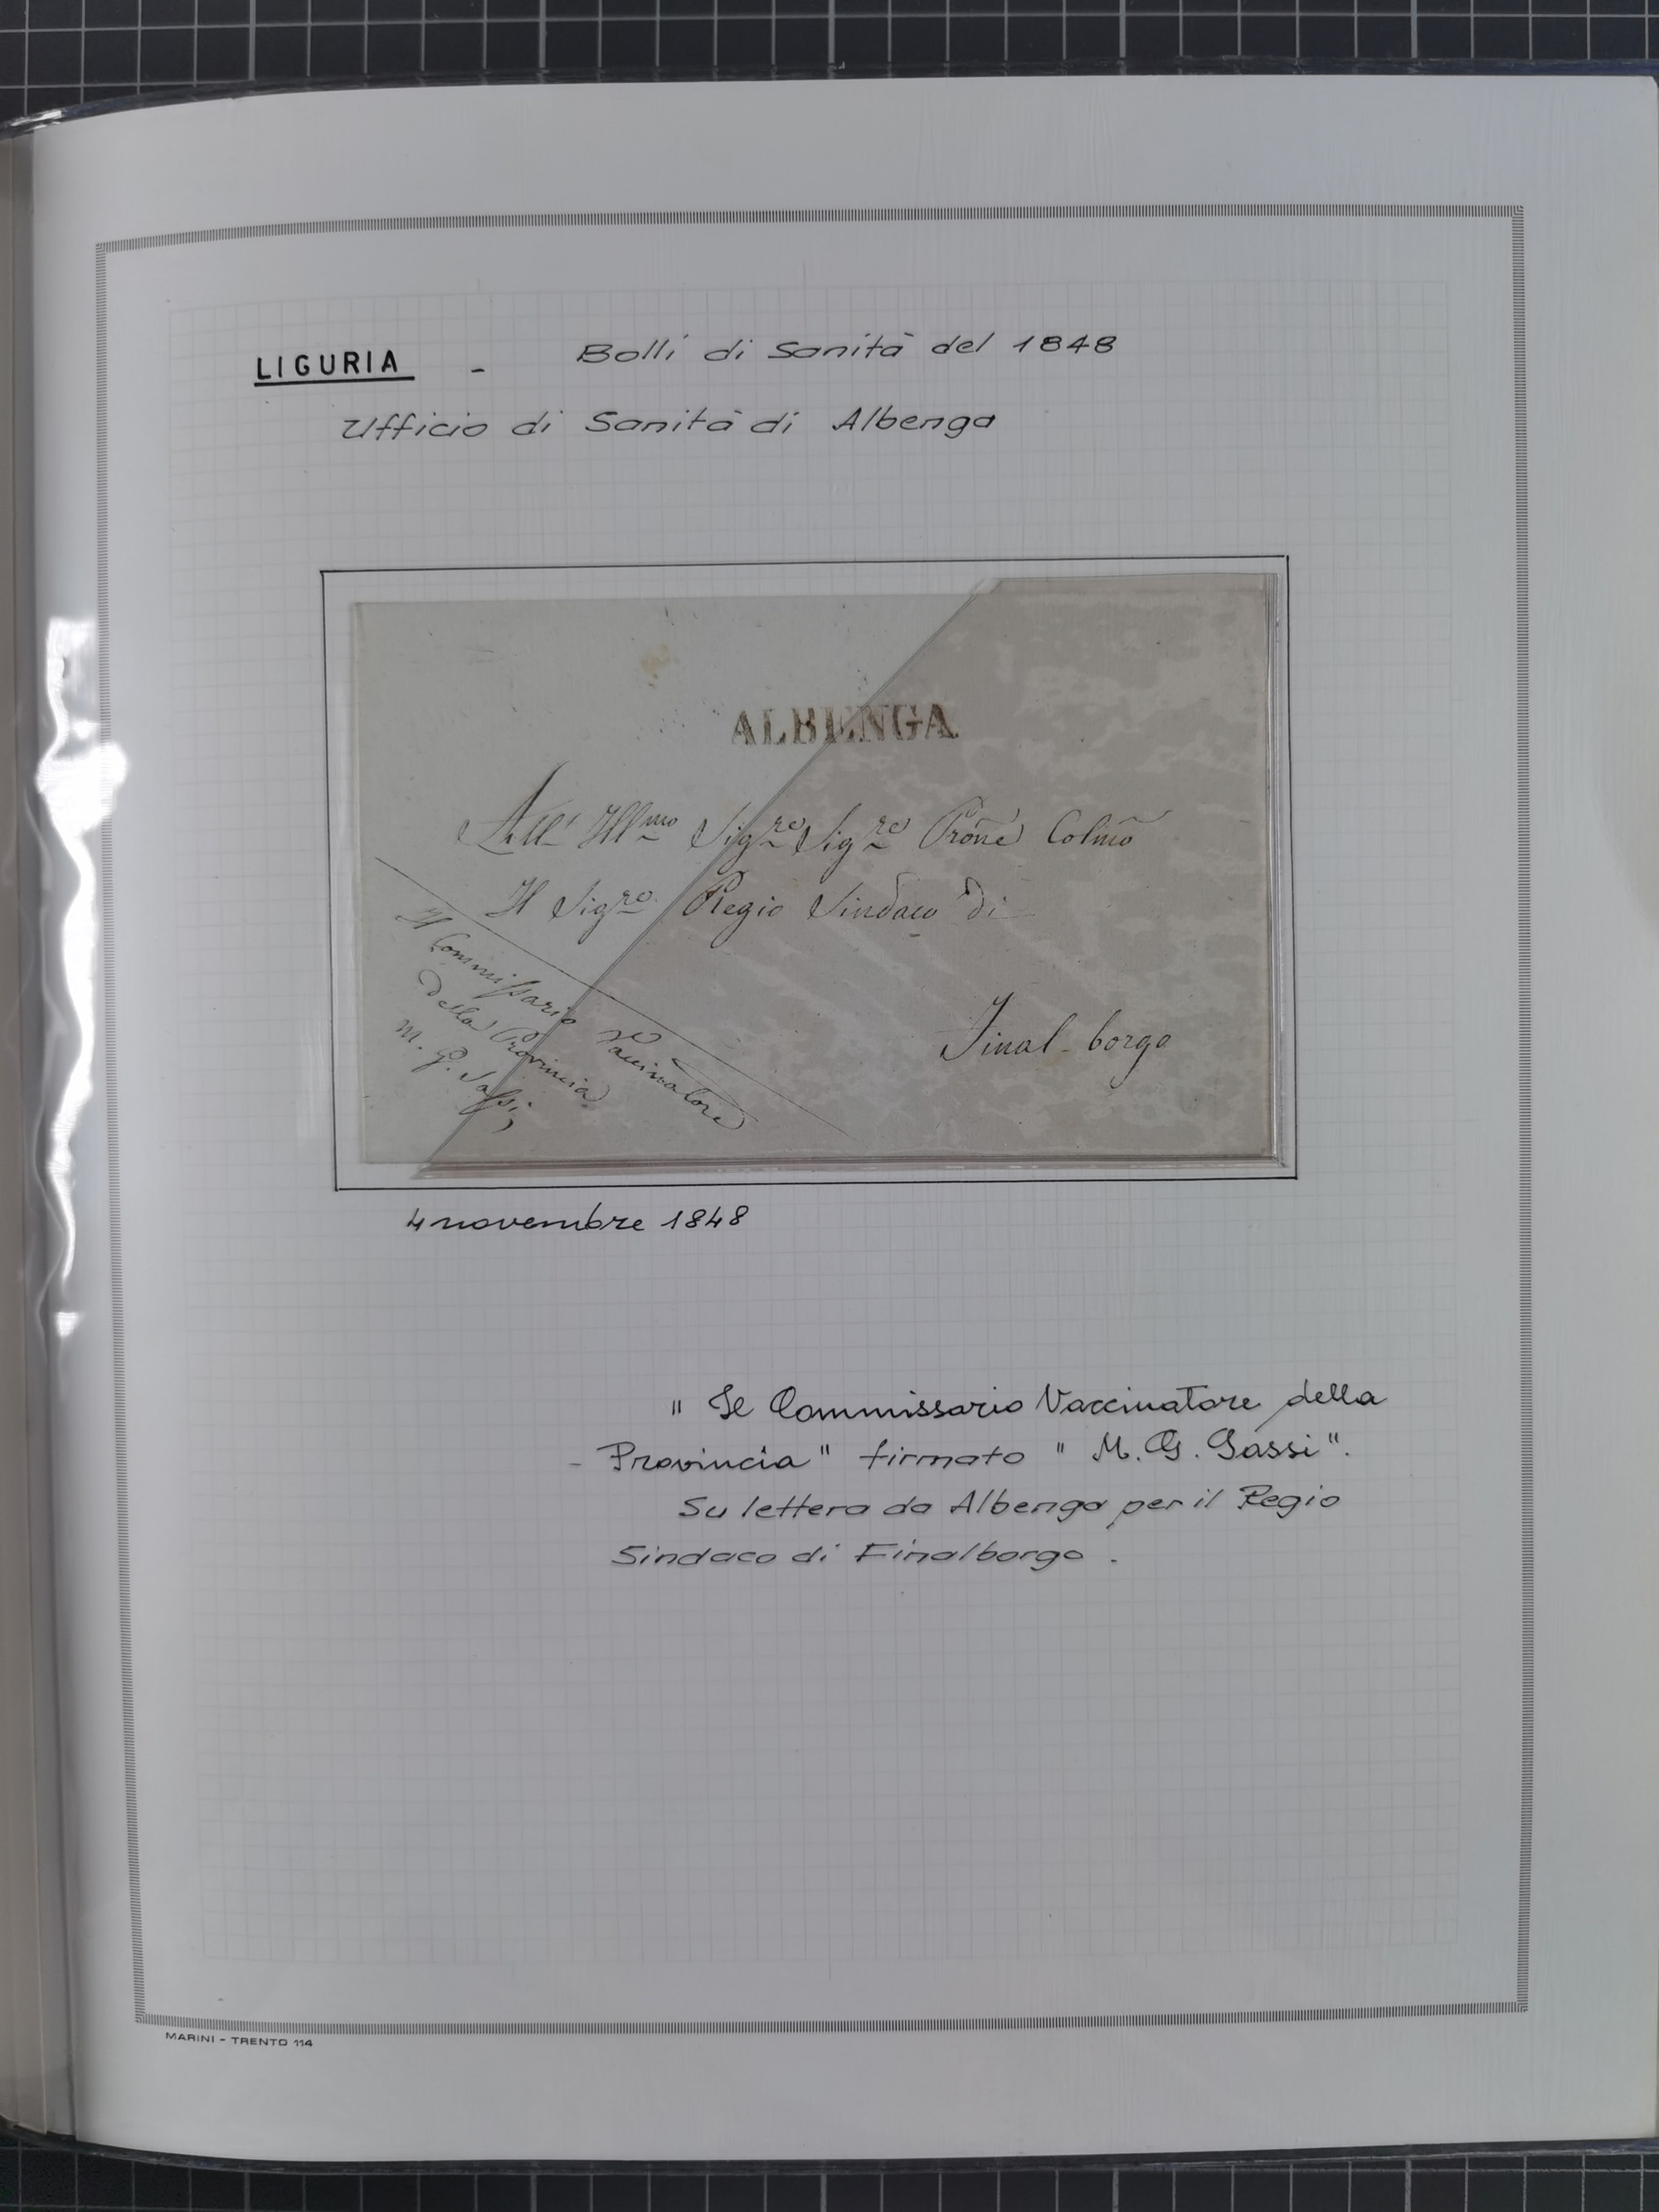 LIGURIA - Bolli di Sanità del 1848
Ufficio di Sanità di Albenga
ALBENGA
All' Ill.mo Sig.re Sig.re Prône Colmo
Il Sig.re Regio Sindaco di
Final-borgo
Il Commissario Vaccinatore
della Provincia
M. G. Sassi
4 novembre 1848
" Il Commissario Vaccinatore della
- Provincia" firmato " M. G. Sassi".
Su lettera da Albenga per il Regio
Sindaco di Finalborgo .
MARINI - TRENTO 114